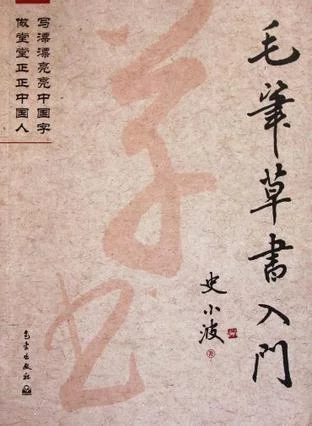 写漂漂亮亮中国字
做堂堂正正中国人
毛筆草書入門
草书
史小波 著
气象出版社